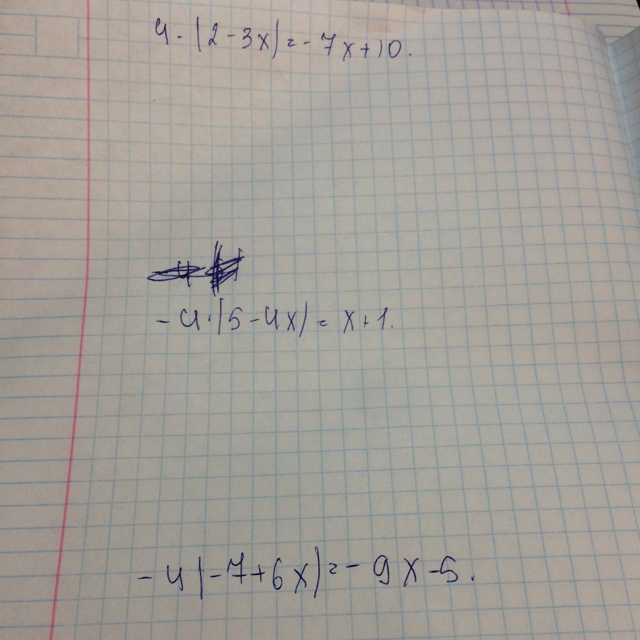 4 · |2 - 3x| = - 7x + 10.
- 4 · |5 - 4x| = x + 1.
- 4 |- 7 + 6x| = - 9x - 5.